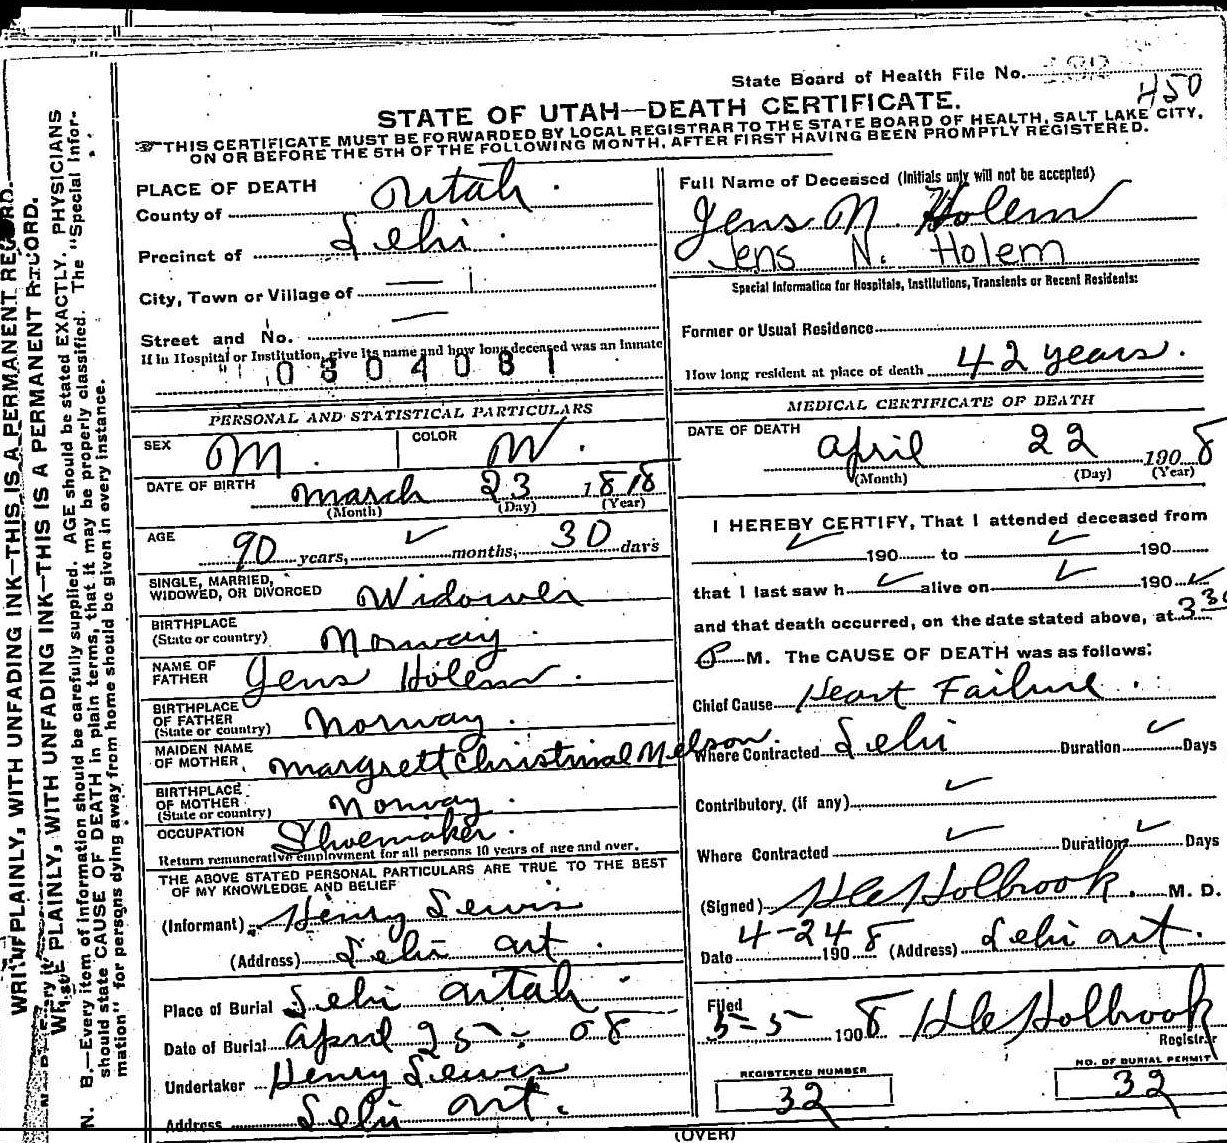 State Board of Health File No.
450
STATE OF UTAH—DEATH CERTIFICATE.
THIS CERTIFICATE MUST BE FORWARDED BY LOCAL REGISTRAR TO THE STATE BOARD OF HEALTH, SALT LAKE CITY,
ON OR BEFORE THE 5TH OF THE FOLLOWING MONTH, AFTER FIRST HAVING BEEN PROMPTLY REGISTERED.
PLACE OF DEATH
County of Utah.
Precinct of Lehi.
City, Town or Village of —
Street and No. —
If in Hospital or Institution, give its name and how long deceased was an Inmate
0304081
PERSONAL AND STATISTICAL PARTICULARS
SEX M. COLOR W.
DATE OF BIRTH March 23 1818
(Month) (Day) (Year)
AGE 90 years, ✓ months, 30 days
SINGLE, MARRIED,
WIDOWED, OR DIVORCED Widower
BIRTHPLACE
(State or country) Norway.
NAME OF
FATHER Jens Holem.
BIRTHPLACE
OF FATHER
(State or country) Norway.
MAIDEN NAME
OF MOTHER Margrett Christinal Nelson.
BIRTHPLACE
OF MOTHER
(State or country) Norway.
OCCUPATION Shoemaker.
Return remunerative employment for all persons 10 years of age and over.
THE ABOVE STATED PERSONAL PARTICULARS ARE TRUE TO THE BEST
OF MY KNOWLEDGE AND BELIEF
(Informant) Henry Lewis
(Address) Lehi Ut.
Place of Burial Lehi Utah.
Date of Burial April 25 - 08
Undertaker Henry Lewis
Address Lehi Ut.
Full Name of Deceased (Initials only will not be accepted)
Jens N Holem
Jens N. Holem
Special Information for Hospitals, Institutions, Transients or Recent Residents:
Former or Usual Residence
How long resident at place of death 42 years.
MEDICAL CERTIFICATE OF DEATH
DATE OF DEATH April 22 1908
(Month) (Day) (Year)
I HEREBY CERTIFY, That I attended deceased from
✓ 190 to ✓ 190
that I last saw h ✓ alive on ✓ 190 ✓
and that death occurred, on the date stated above, at 3 30
P M. The CAUSE OF DEATH was as follows:
Chief Cause Heart Failure.
Where Contracted Lehi Duration ✓ Days
Contributory, (if any) ✓
Where Contracted ✓ Duration ✓ Days
(Signed) Holbrook. M. D.
Date 4-24 1908 (Address) Lehi Ut.
Filed
5-5 1908 Holbrook
Registrar
REGISTERED NUMBER
32
NO. OF BURIAL PERMIT
32
(OVER)
WRITE PLAINLY, WITH UNFADING INK—THIS IS A PERMANENT RECORD.
WRITE PLAINLY, WITH UNFADING INK—THIS IS A PERMANENT RECORD.
N. B.—Every item of information should be carefully supplied. AGE should be stated EXACTLY. PHYSICIANS
should state CAUSE OF DEATH in plain terms, that it may be properly classified. The "Special Infor-
mation" for persons dying away from home should be given in every instance.